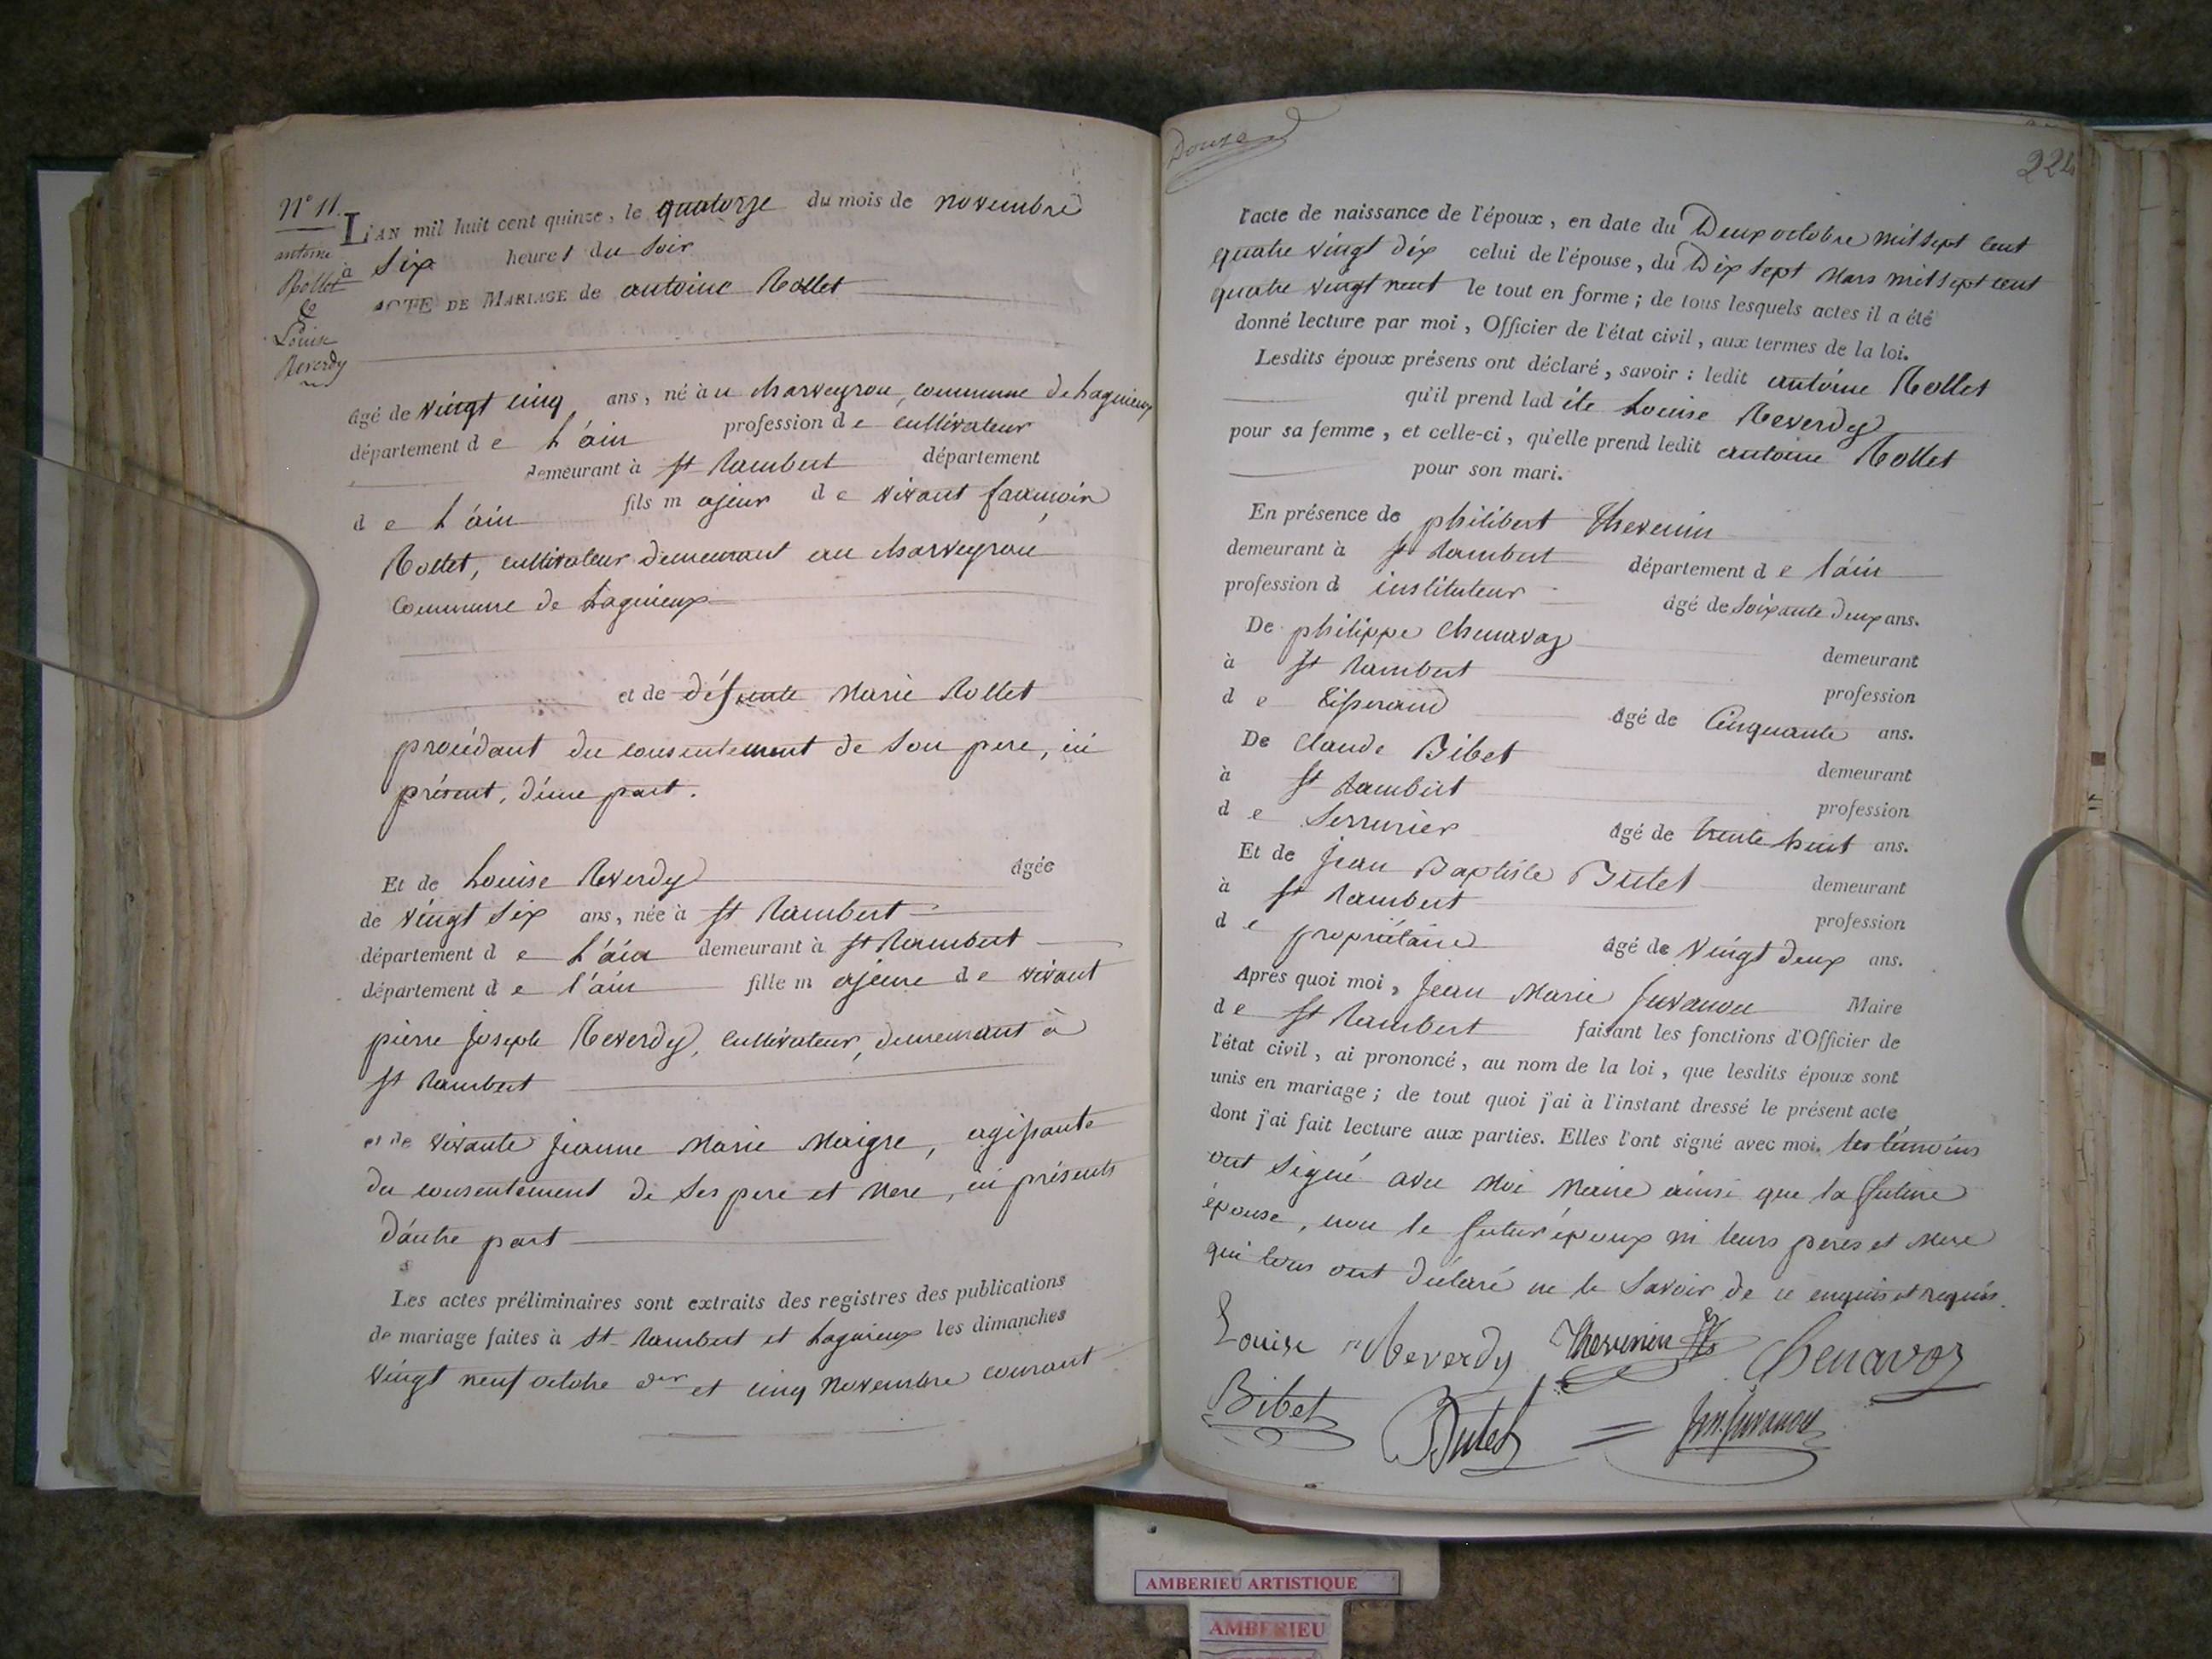 N° 11.
antoine
Rollet
&
Louise
Reverdy
L'AN mil huit cent quinze, le quatorze du mois de novembre
à six heures du soir
ACTE DE MARIAGE de antoine Rollet
âgé de vingt cinq ans, né à u charveyron, commune de Lagnieux
département d e L'áin profession d e cultivateur
demeurant à st Rambert département
d e L'áin fils m ajeur d e vivant
Rollet, cultivateur demeurant au charveyron
Commune de Lagnieux
et de défunte Marie Rollet
procédant du consentement de son pere, ici
présent, d'une part.
Et de Louise Reverdy âgée
de vingt six ans, née à st Rambert
département d e L'áin demeurant à st Rambert
département d e l'áin fille m ajeure d e vivant
pierre Joseph Reverdy, cultivateur, demeurant à
st Rambert
et de vivante Jeanne Marie Maigre, agissante
du consentement de ses pere et Mere, ici présents
d'autre part
Les actes préliminaires sont extraits des registres des publications
de mariage faites à st Rambert et Lagnieux les dimanches
vingt neuf octobre der et cinq novembre courant
Douze
224
l'acte de naissance de l'époux, en date du Deux octobre mil sept cent
quatre vingt dix celui de l'épouse, du Dix sept Mars mil sept cent
quatre vingt neuf le tout en forme ; de tous lesquels actes il a été
donné lecture par moi, Officier de l'état civil, aux termes de la loi.
Lesdits époux présens ont déclaré, savoir : ledit antoine Rollet
qu'il prend lad ite Louise Reverdy
pour sa femme, et celle-ci, qu'elle prend ledit antoine Rollet
pour son mari.
En présence de philibert Thevenin
demeurant à st Rambert département d e l'áin
profession d instituteur âgé de soixante deux ans.
De philippe Chenavaz demeurant
à st Rambert profession
d e tisserand âgé de Cinquante ans.
De Claude Bibet demeurant
à st Rambert profession
d e Serrurier âgé de trente huit ans.
Et de Jean Baptiste Butet demeurant
à st Rambert profession
d e propriétaire âgé de Vingt deux ans.
Après quoi moi, Jean Marie Juvanon Maire
d e st Rambert faisant les fonctions d'Officier de
l'état civil, ai prononcé, au nom de la loi, que lesdits époux sont
unis en mariage ; de tout quoi j'ai à l'instant dressé le présent acte
dont j'ai fait lecture aux parties. Elles l'ont signé avec moi. les témoins
ont signé avec Moi Maire ainsi que la future
épouse, non le futur époux ni leurs peres et Mere
qui tous ont déclaré ne le Savoir de ce enquis et requis.
Louise Reverdy Thevenin Chenavoz
Bibet Butet Juvanon
AMBERIEU ARTISTIQUE
AMBERIEU